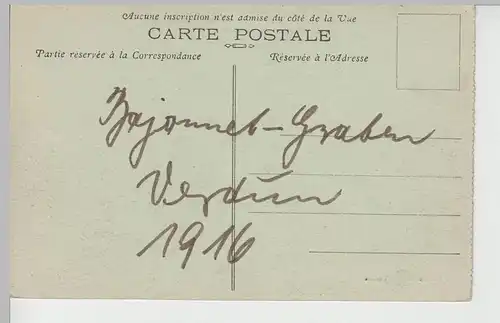 Aucune inscription n'est admise du côté de la Vue
CARTE POSTALE
Partie réservée à la Correspondance
Réservée à l'Adresse
Bajonnet-Graben
Verdun
1916